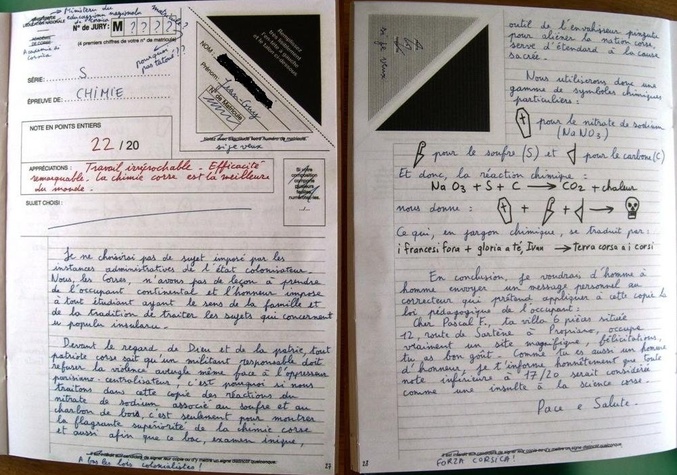 Ministère du
éducation nazionale
N° de JURY: M ? ? ? ?
(4 premiers chiffres de votre n° de matricule)
Académie de
Corsica
pourquoi
pas tatoué ??
SÉRIE: S
ÉPREUVE DE: CHIMIE
NOM:
Prénom: Jean-Ghjasep
N° de Matricule
si je veux
NOTE EN POINTS ENTIERS
22 / 20
APPRÉCIATIONS: Travail irréprochable - Efficacité
remarquable - la chimie corse est la meilleure
du monde -
Si votre
composition
comporte
plusieurs
feuilles,
numérotez-les.
SUJET CHOISI:
Je ne choisirai pas de sujet imposé par les
instances administratives de l'état colonisateur -
Nous, les Corses, n'avons pas de leçon à prendre
de l'occupant continental et l'honneur impose
à tout étudiant ayant le sens de la famille et
de la tradition de traiter les sujets qui concernent
u populu insularu -
Devant le regard de Dieu et de la patrie, tout
patriote corse sait qu'un militant responsable doit
refuser la violence aveugle même face à l'oppresseur
parisiano-centralisateur, c'est pourquoi si nous
traitons dans cette copie des réactions du
nitrate de sodium associé au soufre et au
charbon de bois, c'est seulement pour montrer
la flagrante supériorité de la chimie corse
et aussi afin que ce bac, examen inique,
A bas les lois colonialistes !
27
si je veux
outil de l'envahisseur pinzutu
pour aliéner la nation corse,
serve d'étendard à la cause
sacrée -
Nous utiliserons donc une
gamme de symboles chimiques
particuliers :
pour le nitrate de sodium
(NaNO3)
pour le soufre (S) et pour le carbone (C)
Et donc, la réaction chimique :
Na O3 + S + C → CO2 + chaleur
nous donne : + + →
Ce qui, en jargon chimique, se traduit par :
i francesi fora + gloria a tè, Ivan → Terra corsa a i corsi
En conclusion, je voudrais, d'homme à
homme envoyer un message personnel au
correcteur qui prétend appliquer à cette copie la
loi pédagogique de l'occupant :
Cher Pascal F., la villa 6 pièces située
12, route de Sartène à Propriano, occupe
vraiment un site magnifique, félicitations,
tu as bon goût - Comme tu es aussi un homme
d'honneur, je t'informe honnêtement que toute
note inférieure à 17/20 serait considérée
comme une insulte à la science corse -
Pace e Salute -
FORZA CORSICA !
28